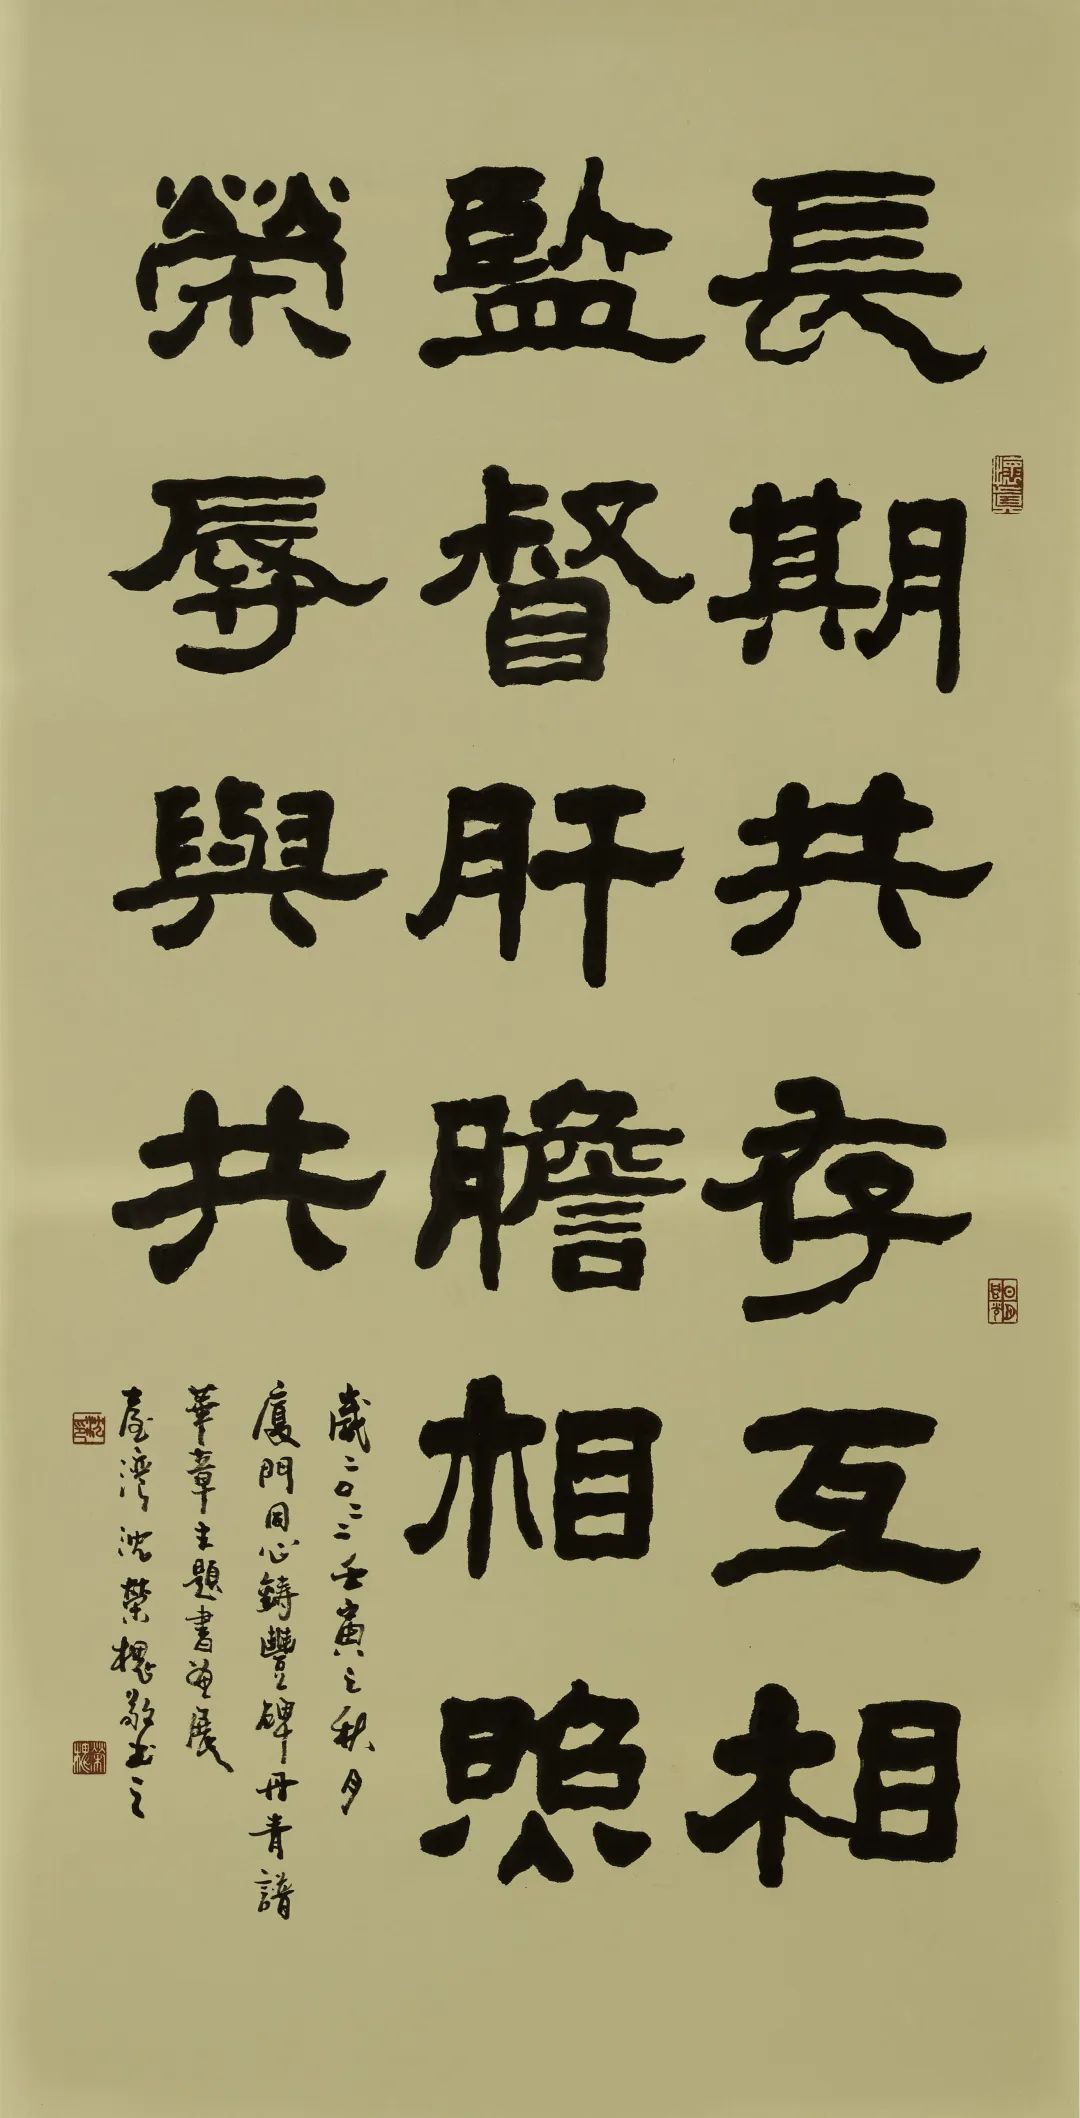 長期共存互相
監督肝膽相照
榮辱與共
歲二〇二二壬寅之秋月
廈門同心鑄豐碑丹青譜
華章主題書畫展
臺灣沈榮槐敬書之